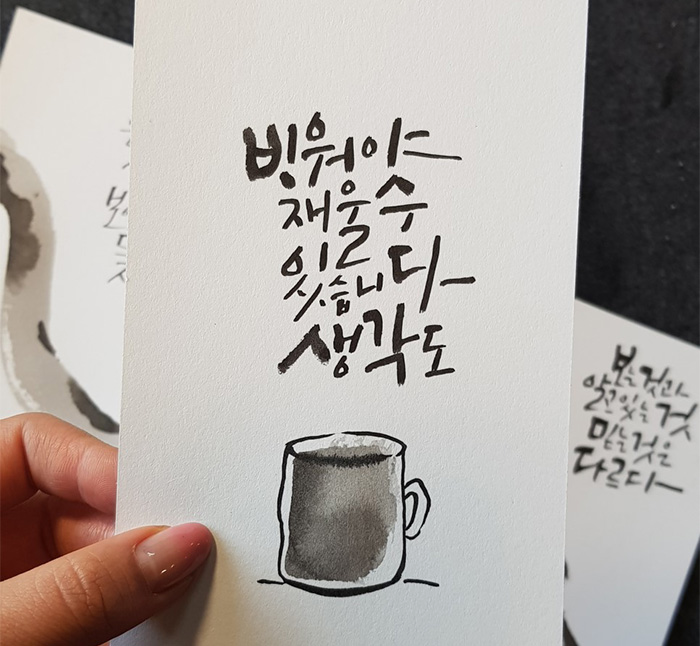 비워야
채울 수
있습니다
생각도
보는 것과
알고 있는 것
믿는 것은
다르다